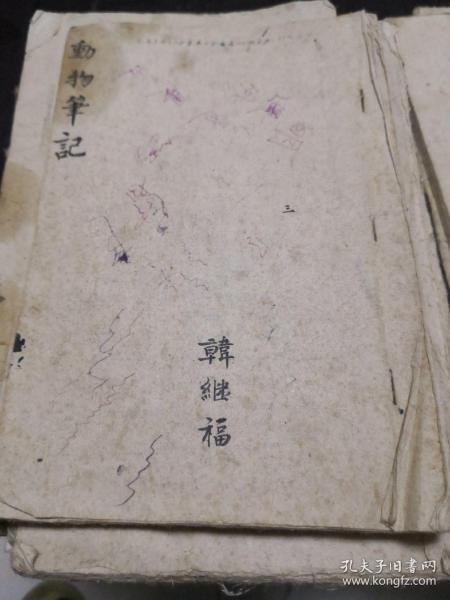 動物筆記
三
韓継福
孔夫子旧书网
www.kongfz.com